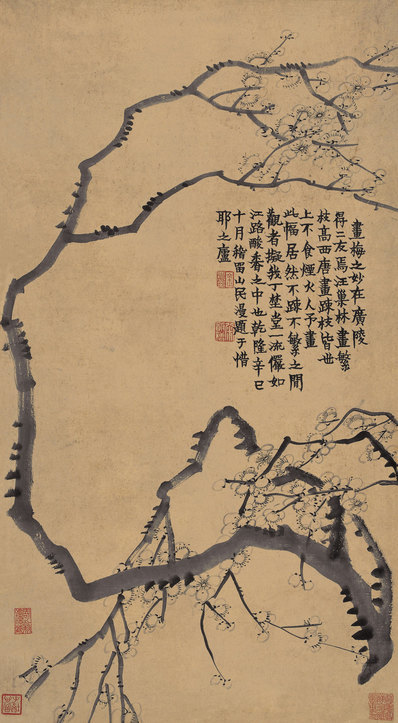 畫梅之妙在廣陵
得二友焉汪巢林畫繁
枝高西唐畫疎枝皆世
上不食煙火人予畫
此幅居然不疎不繁之間
觀者擬我丁埜堂一流儼如
江路酸香之中也乾隆辛巳
十月稽畱山民漫題于惜
耶之廬